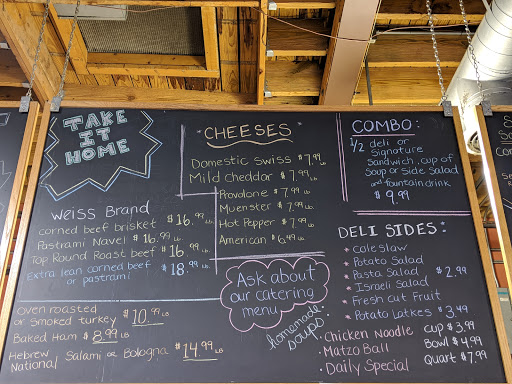 TAKE
IT
HOME
Weiss Brand
corned beef brisket $16.99 LB
Pastrami Navel $16.99 LB
Top Round Roast beef $16.99 LB
Extra lean corned beef
or pastrami $18.99 LB
oven roasted
or smoked turkey $10.99 LB
Baked Ham $8.99 LB
Hebrew
National Salami or Bologna $14.99 LB
"CHEESES"
Domestic Swiss $7.99 LB
Mild cheddar $7.99 LB
Provolone $7.99 LB
Muenster $7.99 LB
Hot Pepper $7.99 LB
American $6.49 LB
Ask about
our catering
menu
COMBO:
1/2 deli or
Signature
Sandwich, cup of
Soup or side Salad
and fountain drink
$9.99
DELI SIDES:
* Coleslaw
* Potato Salad
* Pasta Salad $2.99
* Israeli Salad
* Fresh Cut Fruit
* Potato Latkes $3.49
homemade
soups:
• Chicken Noodle Cup $3.99
• Matzo Ball Bowl $4.99
• Daily Special Quart $7.99